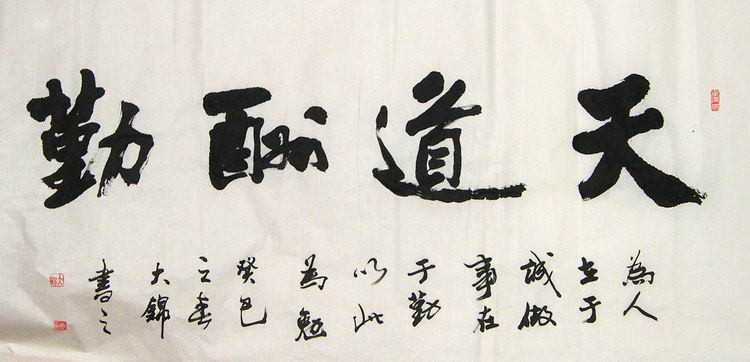 天道酬勤
為人
在于
誠做
事在
于勤
以此
為勉
癸巳
之春
大錦
書之